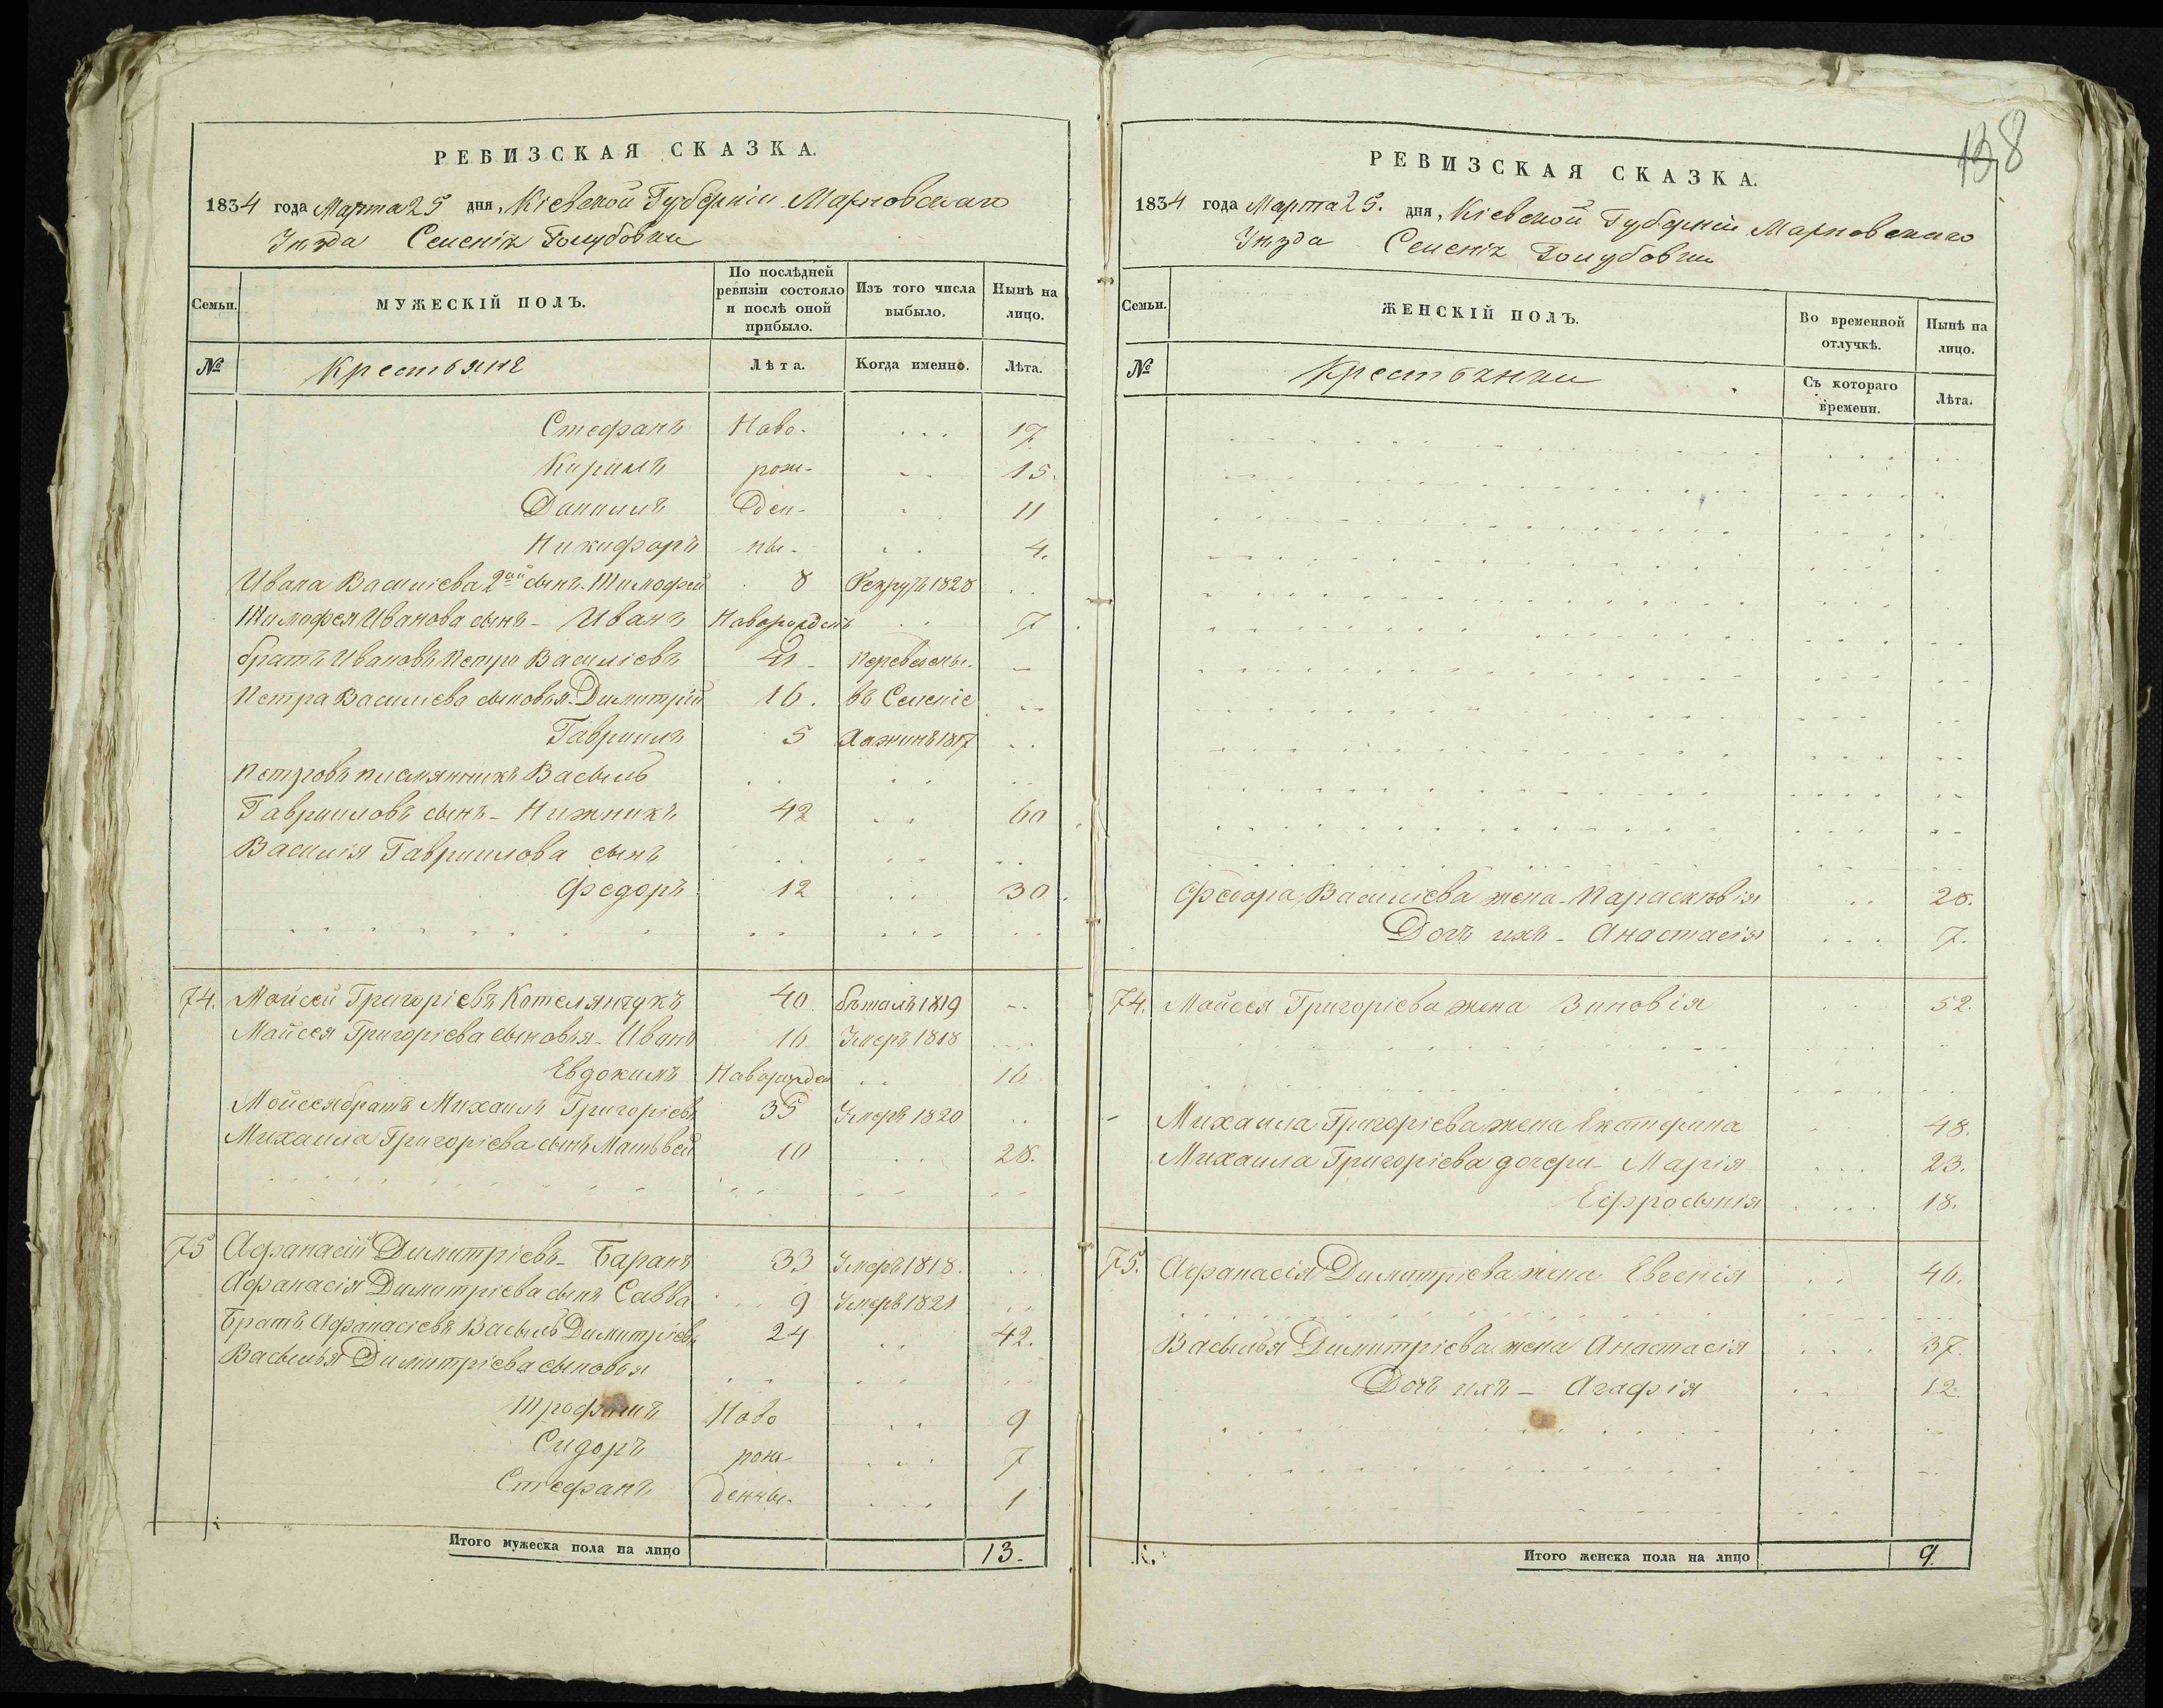 РЕВИЗСКАЯ СКАЗКА.
1834 года Марта 25 дня, Кіевской Губерніи Махновскаго
Уѣзда Селенія Голубовки
Семьи.
МУЖЕСКІЙ ПОЛЪ.
По послѣдней ревизіи состояло и послѣ оной прибыло.
Изъ того числа выбыло.
Нынѣ на лицо.
№ Крестьяне Лѣта. Когда именно. Лѣта.
Стефанъ Ново- 17
Кирилъ рож- 15.
Даніилъ ден- 11
Никифоръ ны- 4.
Ивана Василіева 2ой сынъ Тимофей 8 Рекрутъ 1828
Тимофея Иванова сынъ - Иванъ Новорожденъ 7
братъ Ивановъ Петро Василіевъ Переведены
Петра Василіева сыновья Димитрій 16. въ Селеніе
Гавриилъ 5 1817
Петровъ племянникъ Васыль
Гаврииловъ сынъ - Нижникъ 42 60
Василія Гавриилова сынъ
Федоръ 12 30
74. Мойсей Григоріевъ Котелянчукъ 40 бѣжалъ 1819
Мойсея Григоріева сыновья - Иванъ 16 Умеръ 1818
Евдокимъ Новорожден 16
Мойсея братъ Михаилъ Григоріевъ 35 Умеръ 1820
Михаила Григоріева сынъ Матьвей 10 28.
75 Афанасій Димитріевъ - Баранъ 33 Умеръ 1818.
Афанасія Димитріева сынъ Савва 9 Умеръ 1821
Братъ Афанасіевъ Васыль Димитріевъ 24 42.
Васылья Димитріева сыновья
Трофимъ Ново 9
Сидоръ рож 7
Стефанъ денны. 1
Итого мужеска пола на лицо 13.
138
РЕВИЗСКАЯ СКАЗКА.
1834 года Марта 25. дня, Кіевской Губерніи Махновскаго
Уѣзда Селенія Голубовки
Семьи.
ЖЕНСКІЙ ПОЛЪ.
Во временной отлучкѣ.
Нынѣ на лицо.
№ Крестьянки Съ котораго времени. Лѣта.
Федора Василіева жена - Параскѣвія 28.
Дочь ихъ - Анастасія 7.
74. Мойсея Григоріева жена Зиновія 52.
Михаила Григоріева жена Екатерина 48.
Михаила Григоріева дочери - Марія 23.
Ефросынія 18.
75. Афанасія Димитріева жена Евгенія 46.
Васылья Димитріева жена Анастасія 37.
Дочь ихъ - Агафія 12.
Итого женска пола на лицо 9.